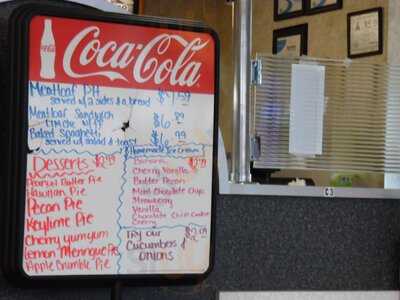 Coca-Cola
Meatloaf Plt
served w/2 sides & a bread
Meatloaf Sandwich
$6
Baked Spaghetti
served w/ salad & toast
$6
Homemade Ice Cream
Desserts $2.79
Peanut Butter Pie
Hawiian Pie
Pecan Pie
Keylime Pie
Cherry yumyum
Lemon Meringue Pie
Apple Crumble Pie
Banana
Cherry Vanilla
Butter Pecan
Mint Chocolate Chip
Strawberry
Vanilla
Chocolate Chip Cookie
Cherry
Try our
Cucumbers
Onions
C3